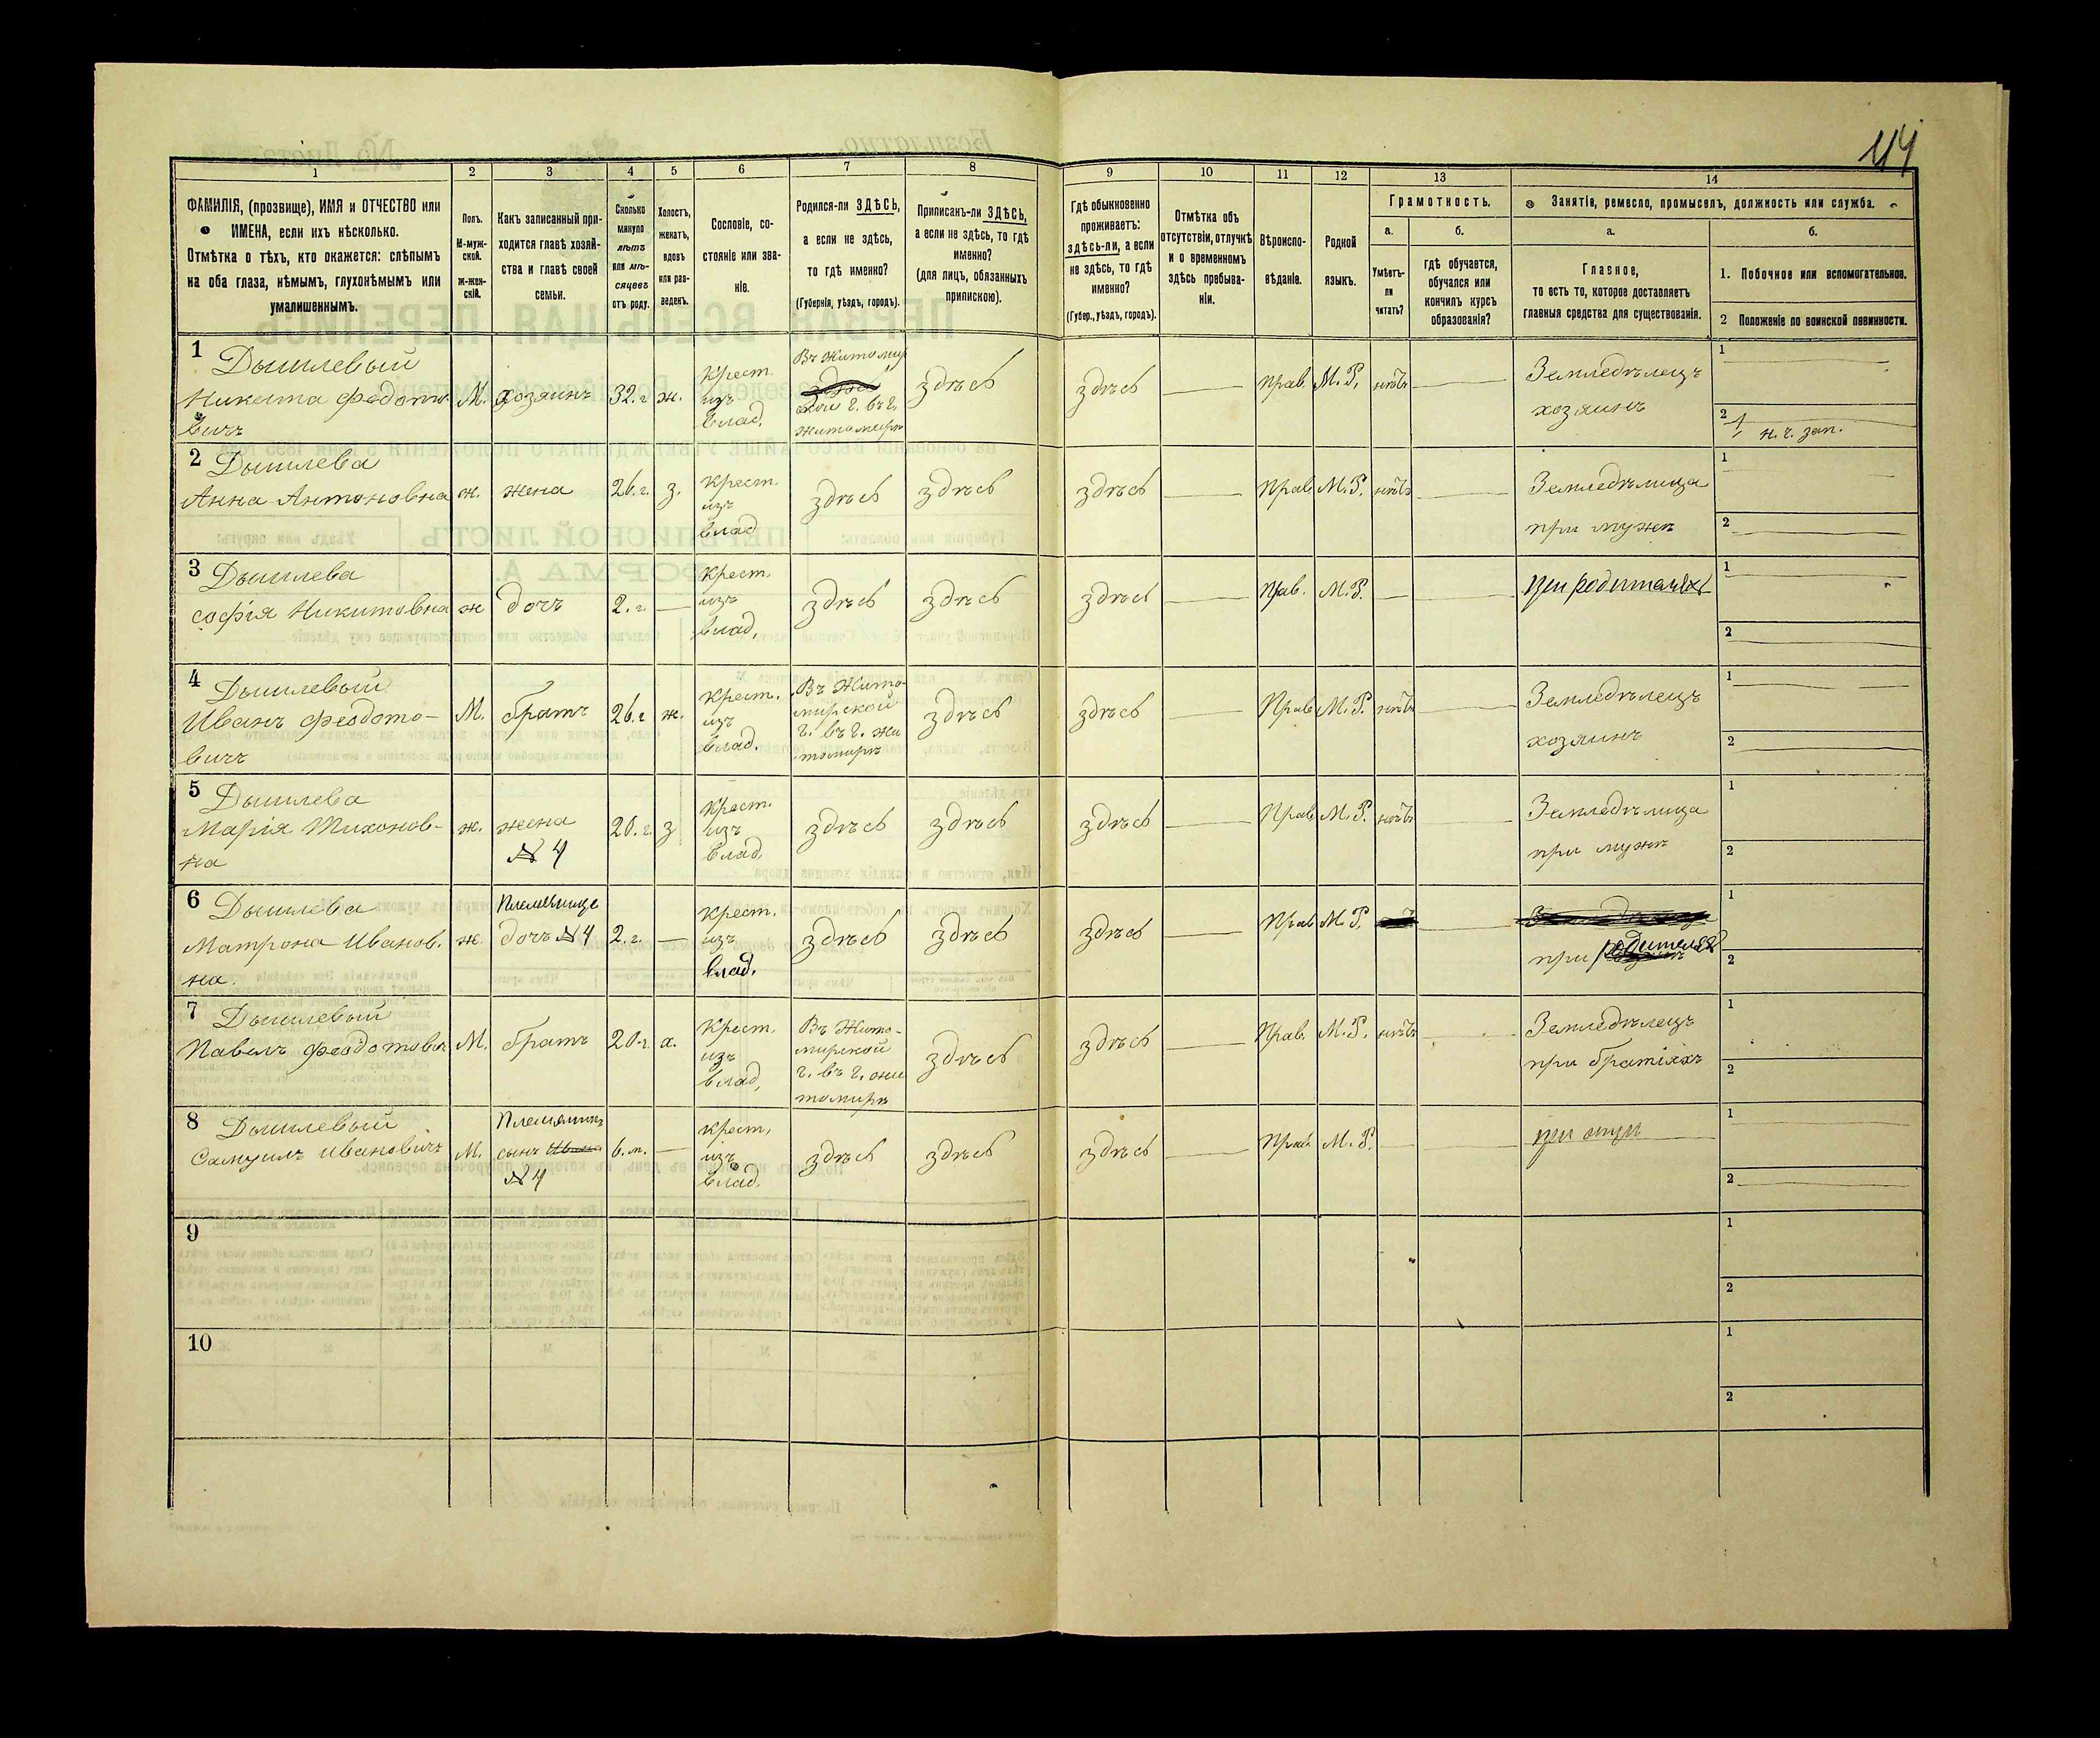 44
1
2
3
4
5
6
7
8
9
10
11
12
13
14
ФАМИЛІЯ, (прозвище), ИМЯ и ОТЧЕСТВО или
ИМЕНА, если ихъ нѣсколько.
Отмѣтка о тѣхъ, кто окажется: слѣпымъ
на оба глаза, нѣмымъ, глухонѣмымъ или
умалишеннымъ.
Полъ.
М-муж-
ской.
Ж-жен-
скій.
Какъ записанный при-
ходится главѣ хозяй-
ства и главѣ своей
семьи.
Сколько
минуло
лѣтъ
или мѣ-
сяцевъ
отъ роду.
Холостъ,
женатъ,
вдовъ
или раз-
веденъ.
Сословіе, со-
стояніе или зва-
ніе.
Родился-ли ЗДѢСЬ,
а если не здѣсь,
то гдѣ именно?
(Губернія, уѣздъ, городъ).
Приписанъ-ли ЗДѢСЬ,
а если не здѣсь, то гдѣ
именно?
(для лицъ, обязанныхъ
припискою).
Гдѣ обыкновенно
проживаетъ:
здѣсь-ли, а если
не здѣсь, то гдѣ
именно?
(Губер., уѣздъ, городъ).
Отмѣтка объ
отсутствіи, отлучкѣ
и о временномъ
здѣсь пребыва-
ніи.
Вѣроиспо-
вѣданіе.
Родной
языкъ.
Грамотность.
а.
Умѣетъ-
ли
читать?
б.
гдѣ обучается,
обучался или
кончилъ курсъ
образованія?
Занятіе, ремесло, промыселъ, должность или служба.
а.
Главное,
то есть то, которое доставляетъ
главныя средства для существованія.
б.
1. Побочное или вспомогательное.
2 Положеніе по воинской повинности.
1 Дышлевый
Никита Федото
вичъ
М.
хозяинъ
32. г
ж.
Крест.
изъ
влад.
Въ Житомир
ской г. въ г.
Житомирѣ
здѣсь
здѣсь
Прав.
М. Р.
нѣтъ
Земледѣлецъ
хозяинъ
1
2
н. г. зап.
2 Дышлева
Анна Антоновна
ж.
жена
26. г.
з.
Крест.
изъ
влад
здѣсь
здѣсь
здѣсь
Прав
М. Р.
нѣтъ
Земледѣлица
при мужѣ
1
2
3 Дышлева
Софія Никитовна
ж
дочь
2. г.
Крест.
изъ
влад.
здѣсь
здѣсь
здѣсь
Прав.
М. Р.
при родителяхъ
1
2
4 Дышлевый
Иванъ Феодото-
вичъ
М.
братъ
26. г
ж.
Крест.
изъ
влад.
Въ Жито-
мирской
г. въ г. Жи
томирѣ
здѣсь
здѣсь
Прав
М. Р.
нѣтъ
Земледѣлецъ
хозяинъ
1
2
5 Дышлева
Марія Тихонов-
на
ж.
жена
N 4
20. г.
з
Крест.
изъ
влад.
здѣсь
здѣсь
здѣсь
Прав
М. Р.
нѣтъ
Земледѣлица
при мужѣ
1
2
6 Дышлева
Матрона Иванов.
на.
ж.
дочь N 4
2. г.
Крест.
изъ
влад.
здѣсь
здѣсь
здѣсь
Прав
М. Р.
при родителях
1
2
7 Дышлевый
Павелъ Феодотовичъ
М.
братъ
20. г.
х.
Крест.
изъ
влад.
Въ Жито-
мирской
г. въ г. Жи
томирѣ
здѣсь
здѣсь
Прав.
М. Р.
нѣтъ
Земледѣлецъ
при братіяхъ
1
2
8 Дышлевый
Самуилъ Ивановичъ
М.
Племянникъ
сынъ
N 4
6. м.
Крест.
изъ
влад.
здѣсь
здѣсь
здѣсь
Прав
М. Р.
при отцѣ
1
2
9
1
2
10
1
2